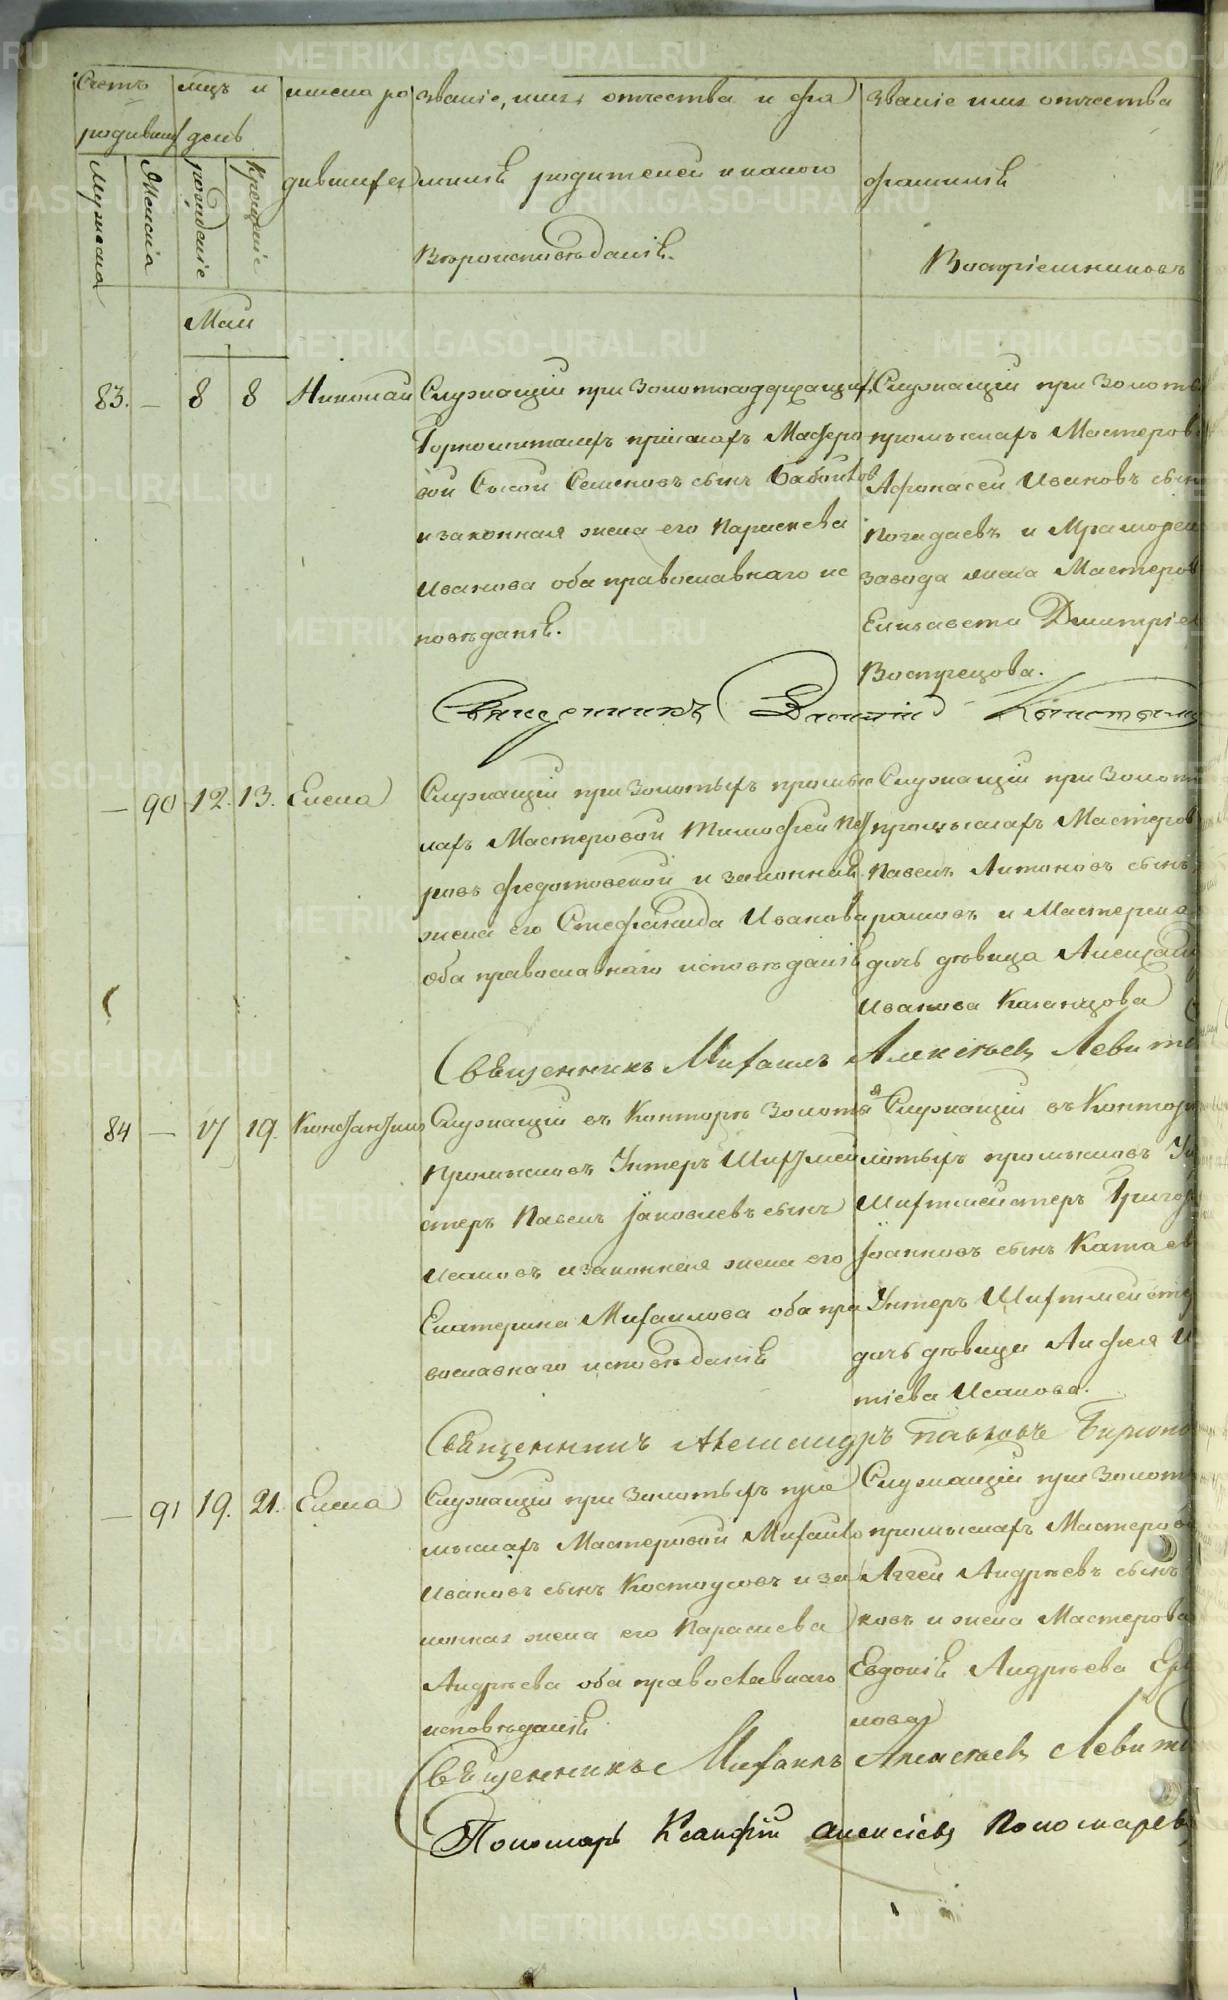 Счетъ родившихся
Мужеска
Женска
мцъ и день
рожденіе
крещеніе
имена родившихся
Званіе, имя, отчества и фамилія родителей и какого
Вѣроисповѣданія.
Званіе имя отчества
фамилія
Воспріемниковъ
Маи
83. — 8 8 Николай
Служащій при золотосодержащихъ
Горнощитскихъ пріискахъ Мастеро
вой Сысой Семеновъ сынъ
и законная жена его Параскева
Иванова оба православнаго ис
повѣданія.
Служащій при Золотыхъ
промыслахъ Мастеров
Афонасей Ивановъ сынъ
Погадаевъ и Мраморск
завода жена Мастеров
Елисавета Дмитріев
Вострецова.
Священникъ Константин
— 90 12. 13. Елена
Служащій при Золотыхъ промы
лахъ Мастеровой Тимофей Пет
ровъ Федотовской и законная
жена его Стефанида Иванова
оба православнаго исповѣданія
Служащій при Золоты
промыслахъ Мастеров
Павелъ Антоновъ сынъ
рамовъ и Мастерска
дочь дѣвица Александ
Иванова Казанцова
Священникъ Михаилъ Алексѣевъ Левит
84 — 17 19. Константинъ
Служащій въ Конторѣ Золоты
Промысловъ Унтеръ Шихтмей
стеръ Павелъ Іаковлевъ сынъ
Исаковъ и законная жена его
Екатерина Михаилова оба пра
вославнаго исповѣданія
Служащій въ Контор
лотыхъ промысловъ Ун
Шихтмейстеръ Григор
Іоанновъ сынъ Катаев
Унтеръ Шихтмейсте
дочь дѣвица Анфея И
тіева Исакова.
Священникъ Александръ Павловъ
— 91 19. 21. Елена
Служащій при Золотыхъ про
мыслахъ Мастеровой Михаило
Ивановъ сынъ Костоусовъ и за
конная жена его Параскева
Андреева оба православнаго
исповѣданія
Служащій при Золоты
промыслахъ Мастерово
Аггей Андреевъ сынъ
ковъ и жена Мастерова
Евдокія Андреева Ер
лова
Священникъ Михаилъ Алексѣевъ Левит
Пономарь Ксанфій Алексіевъ Пономаревъ
METRIKI.GASO-URAL.RU